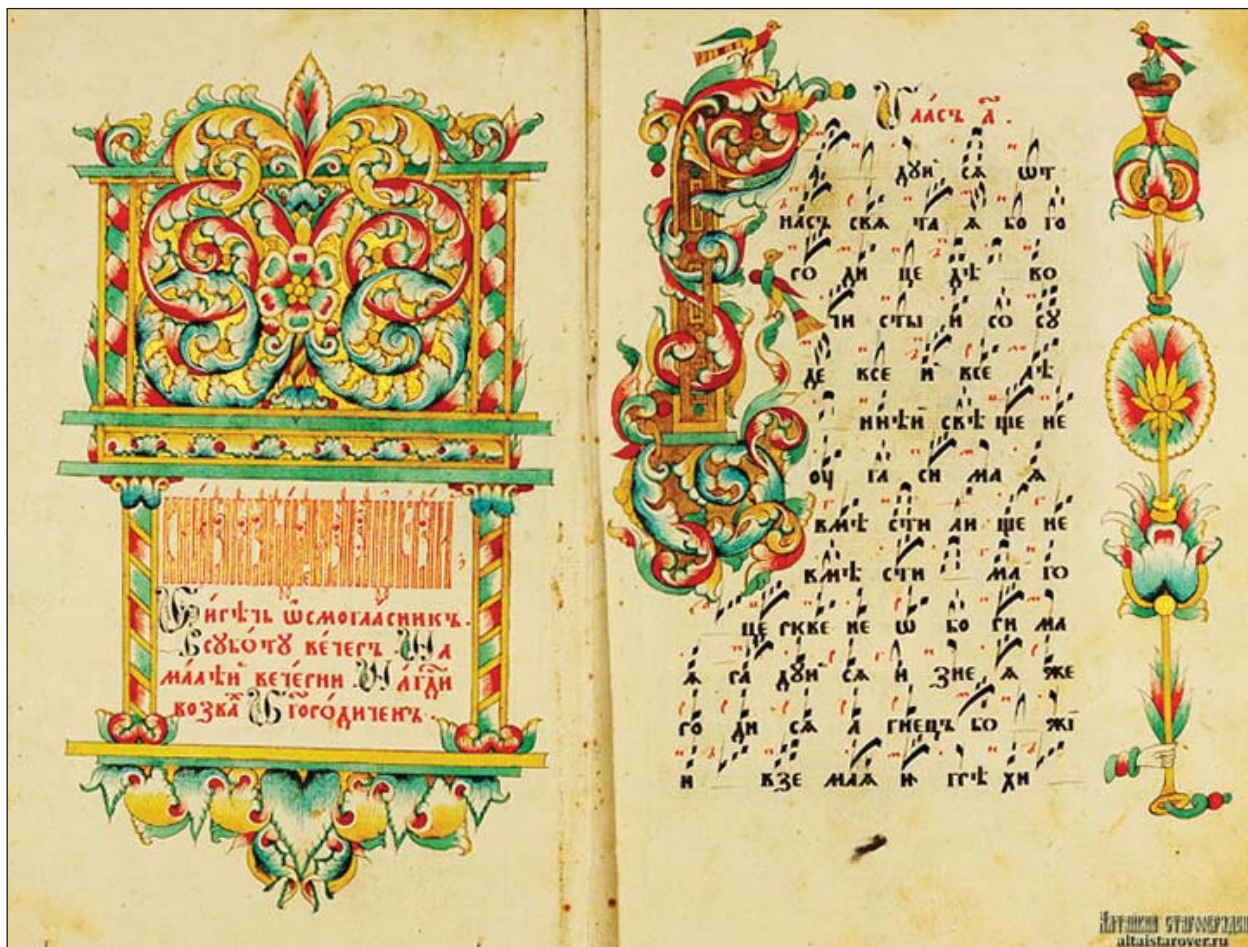 Сирѣчь ѡсмогласникъ .
Всꙋбо́тꙋ ве́черъ . На
ма́лѣй вече́рни . На гд҇и
возва̾ Бг҃оро́диченъ .
Гла́съ а҃ .
Ра дꙋй сѧ ѿт
насъ свѧ та ѧ бо го
ро ди це дѣ во
чи сты и со сꙋ
де все й все лѣ
ннѣй свѣ ще не
оу га си ма ѧ
вмѣ сти ли ще не
вмѣ сти ма го
це ркве не ѡ бо ри ма
ѧ ра дꙋй сѧ и зне ѧ же
ро ди сѧ а гнецъ бо жї
и взе млѧ и грѣ хи
Алтайский старообрядец
altaistarover.ru